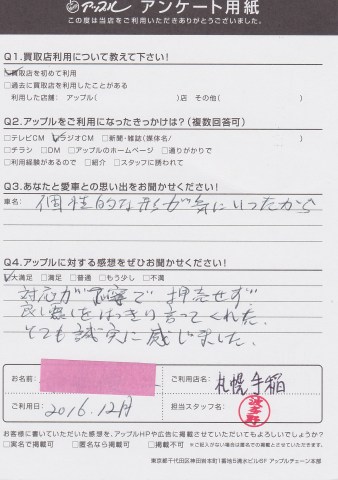 アップル アンケート用紙
この度は当店をご利用いただきありがとうございました。
Q1.買取店利用について教えて下さい!
☑買取店を初めて利用
□過去に買取店を利用したことがある
利用した店舗: アップル( )店 その他( )
Q2.アップルをご利用になったきっかけは?(複数回答可)
□テレビCM ☑ラジオCM □新聞・雑誌(媒体名/ )
□チラシ □DM □アップルのホームページ □通りがかりで
□利用経験があるので □紹介 □スタッフに誘われて
Q3.あなたと愛車との思い出をお聞かせください!
車名:
個性的な形が気にいったから
Q4.アップルに対する感想をぜひお聞かせください!
☑大満足 □満足 □普通 □もう少し □不満
対応が丁寧で押売せず
良し悪しをはっきり言ってくれた。
とても誠実に感じました。
お名前:
ご利用店名: 札幌手稲
ご利用日: 2016.12月
担当スタッフ名:
お客様に書いていただいた感想を、アップルHPや広告に掲載させていただいてもよろしいでしょうか?
□実名で掲載可 □匿名なら掲載可 □掲載不可 ※ご記入がない場合は匿名での掲載とさせていただきます。
東京都千代田区神田岩本町1番地5清水ビル6F アップルチェーン本部